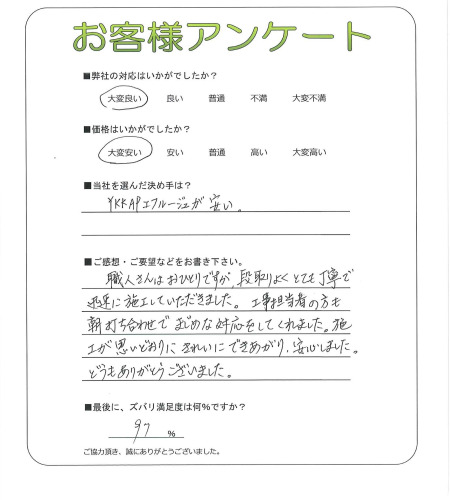 お客様アンケート
■弊社の対応はいかがでしたか？
大変良い 良い 普通 不満 大変不満
■価格はいかがでしたか？
大変安い 安い 普通 高い 大変高い
■当社を選んだ決め手は？
YKKAPエフルージュが安い。
■ご感想・ご要望などをお書き下さい。
職人さんはおひとりですが、段取りよくとても丁寧で
迅速に施工していただきました。工事担当者の方も
朝打ち合わせでまじめな対応をしてくれました。施
工が思いどおりにきれいにできあがり、安心しました。
どうもありがとうございました。
■最後に、ズバリ満足度は何%ですか？
97 %
ご協力頂き、誠にありがとうございました。